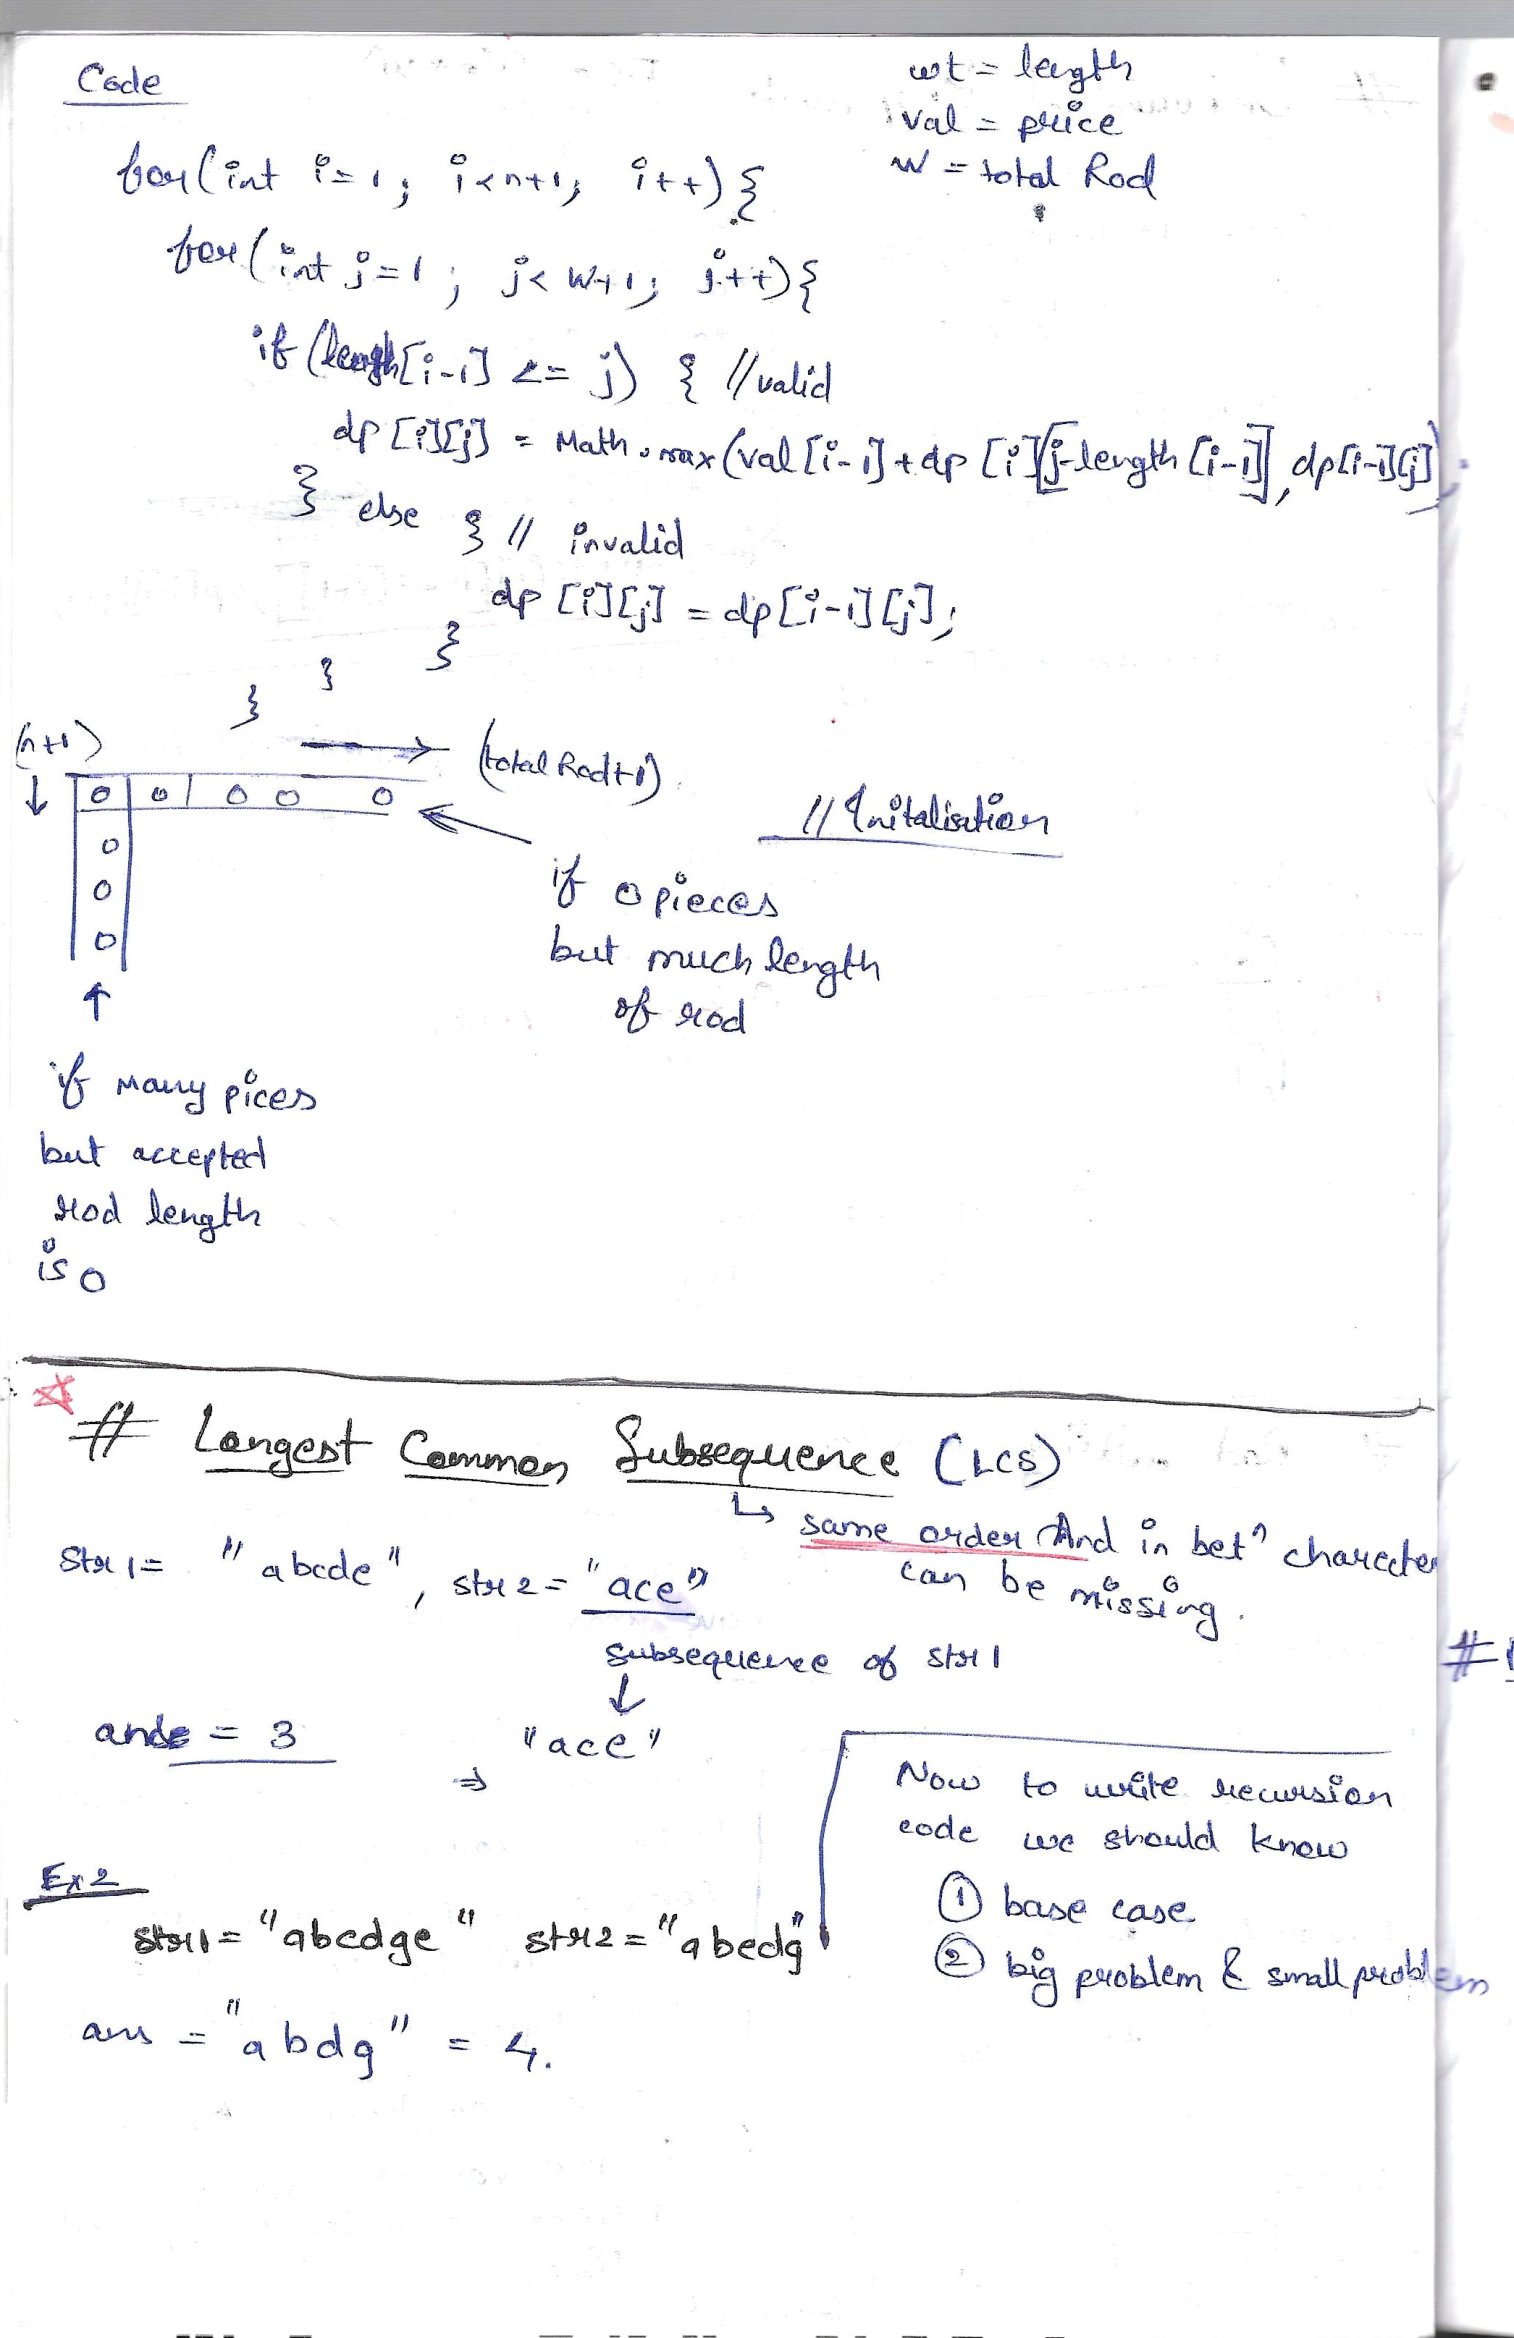 Code
wt = length
val = price
W = total Rod
for(int i=1; i<n+1; i++){
for(int j=1; j<W+1; j++){
if(length[i-1] <= j) { //valid
dp[i][j] = Math.max(val[i-1]+dp[i][j-length[i-1]], dp[i-1][j]);
} else { // invalid
dp[i][j] = dp[i-1][j];
}
}
}
(n+1)
(total Rod+1)
0 0 0 0 0
0
0
0
// Initalisation
if 0 pieces
but much length
of rod
if many pices
but accepted
rod length
is 0
# Longest Common Subsequence (LCS)
↳ same order And in betn character
can be missing.
Str1= "abcde", str2="ace"
subsequence of str1
↓
ans = 3 ⇒ "ace"
Now to write recursion
code we should know
① base case
② big problem & small problem
Ex2
str1="abcdge" str2="abedg"
ans = "abdg" = 4.
#